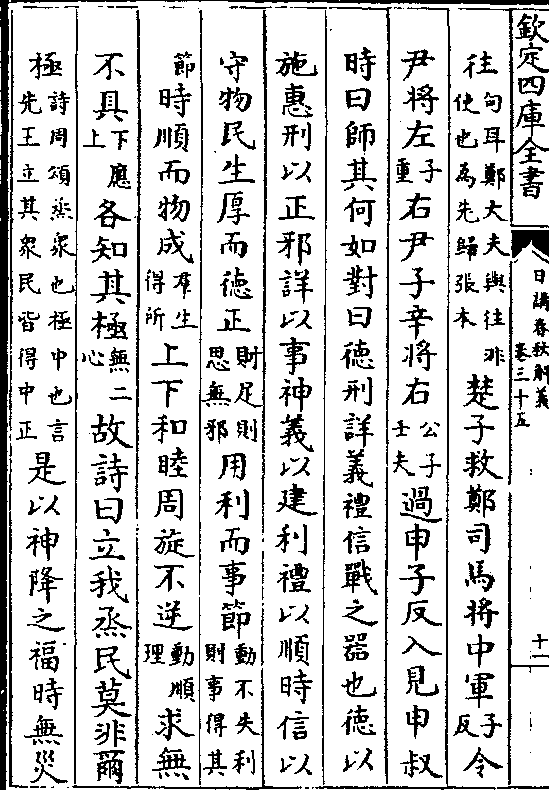 欽定四庫全書
日講春秋解義
卷三十五
十一
往句耳鄭大夫與往非使也為先歸張本楚子救鄭司馬將中軍子反令
尹將左子重右尹子辛將右公子壬夫過申子反入見申叔
時曰師其何如對曰徳刑詳義禮信戰之器也徳以
施惠刑以正邪詳以事神義以建利禮以順時信以
守物民生厚而徳正則足則思無邪用利而事節動不失利則事得其
節時順而物成羣生得所上下和睦周旋不逆動順理求無
不具下應上各知其極無二心故詩曰立我烝民莫非爾
極詩周頌烝衆也極中也言先王立其衆民皆得中正是以神降之福時無災